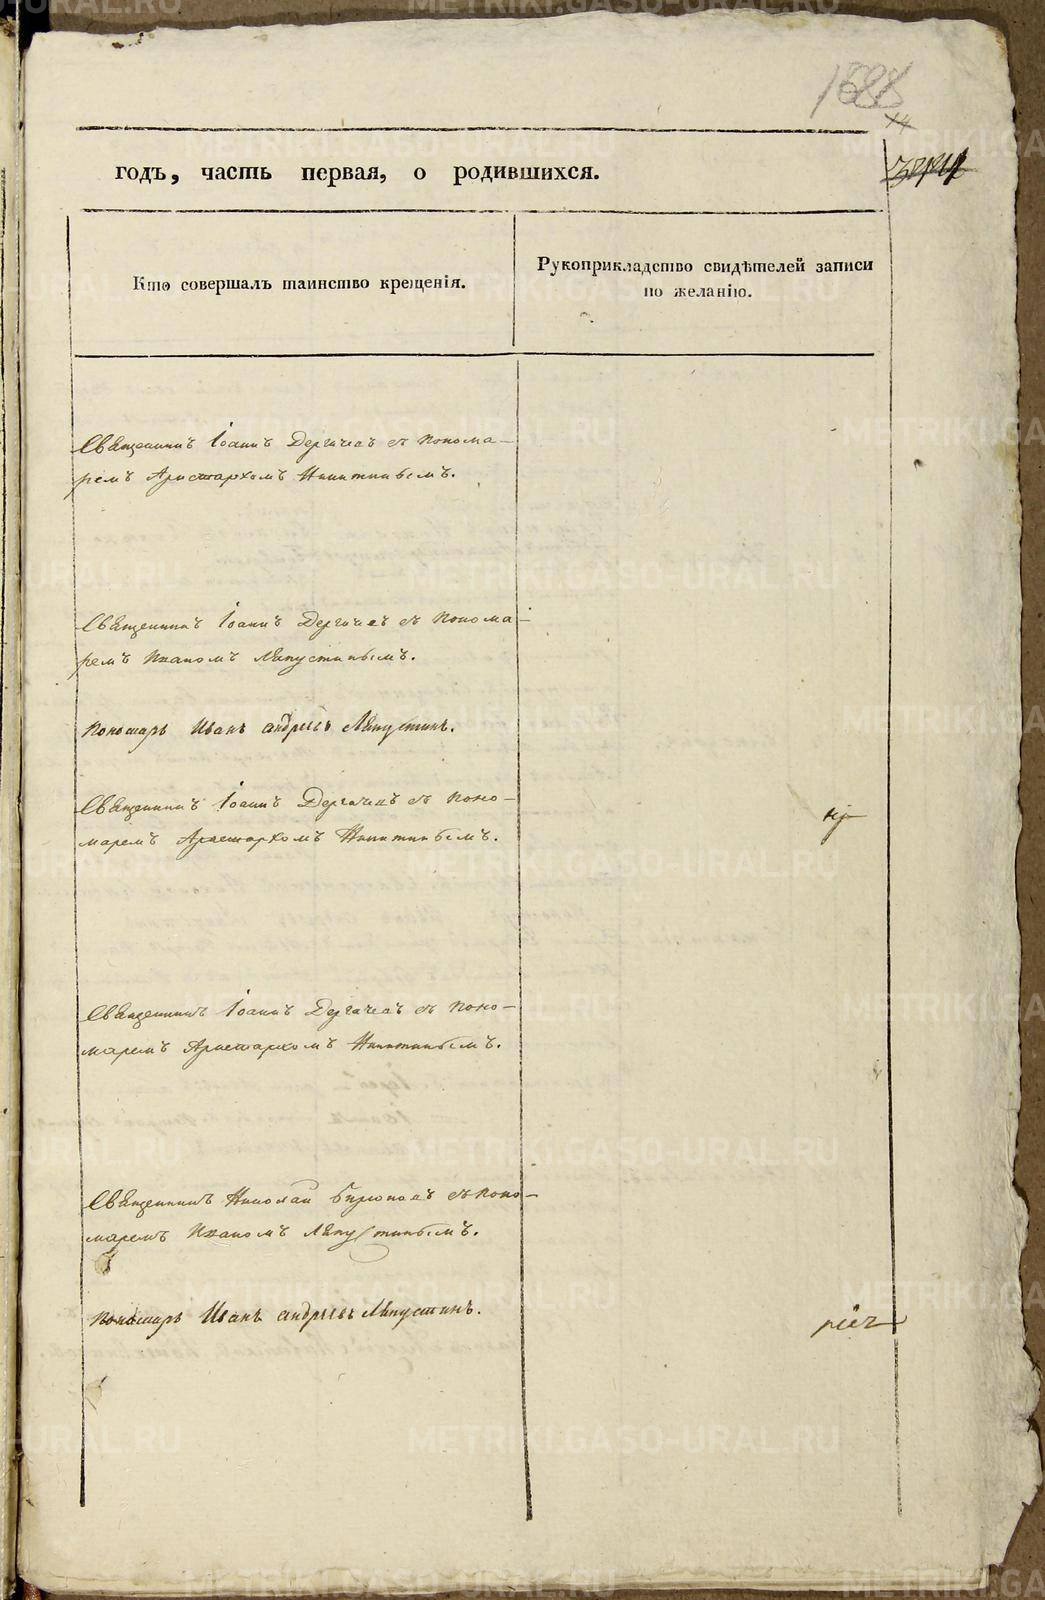 1588
14
годъ, часть первая, о родившихся.
Кто совершалъ таинство крещенія.
Рукоприкладство свидѣтелей записи
по желанію.
Священникъ Іоаннъ Дергачевъ съ понома-
ремъ Аристархомъ Никитинымъ.
Священникъ Іоаннъ Дергачевъ съ понома-
ремъ Иваномъ Ляпустинымъ.
Пономарь Иванъ Андреевъ Ляпустинъ.
Священникъ Іоаннъ Дергачевъ съ поно-
маремъ Аристархомъ Никитинымъ.
Священникъ Іоаннъ Дергачевъ съ поно-
маремъ Аристархомъ Никитинымъ.
Священникъ Николай Бирюковъ съ поно-
маремъ Иваномъ Ляпустинымъ.
Пономарь Иванъ Андреевъ Ляпустинъ.
METRIKI.GASO-URAL.RU